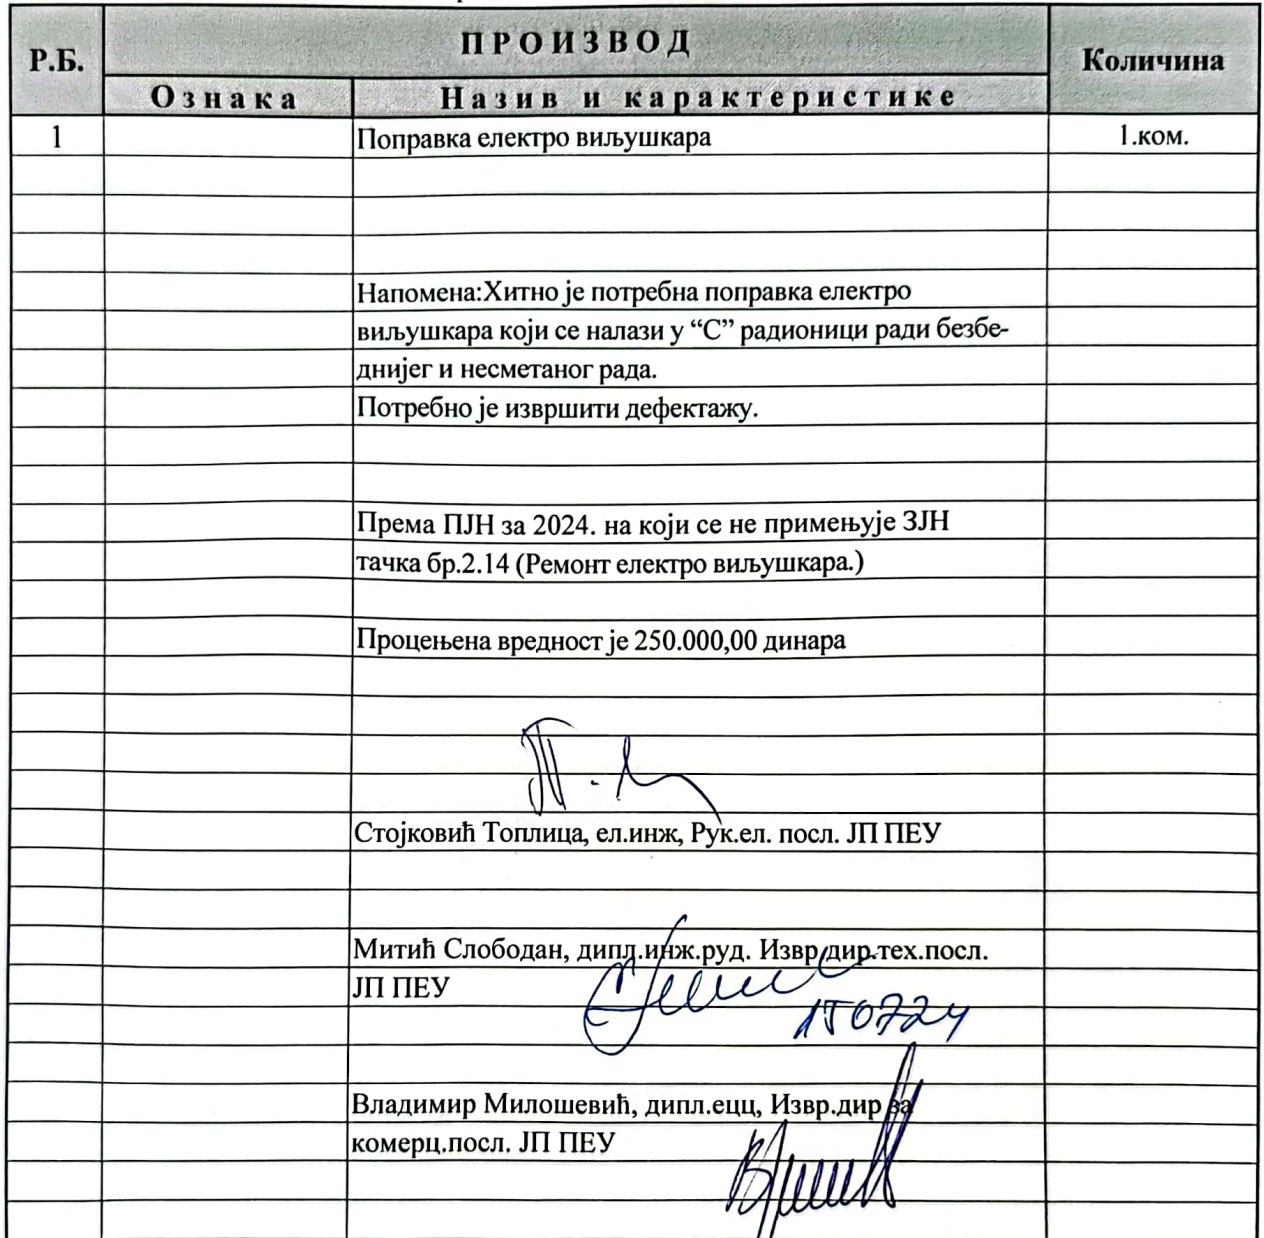 Р.Б.
ПРОИЗВОД
Количина
Ознака
Назив и карактеристике
1
Поправка електро виљушкара
1.ком.
Напомена:Хитно је потребна поправка електро
виљушкара који се налази у “С” радионици ради безбе-
днијег и несметаног рада.
Потребно је извршити дефектажу.
Према ПЈН за 2024. на који се не примењује ЗЈН
тачка бр.2.14 (Ремонт електро виљушкара.)
Процењена вредност је 250.000,00 динара
Стојковић Топлица, ел.инж, Рук.ел. посл. ЈП ПЕУ
Митић Слободан, дипл.инж.руд. Извр.дир.тех.посл.
ЈП ПЕУ
150724
Владимир Милошевић, дипл.ецц, Извр.дир за
комерц.посл. ЈП ПЕУ